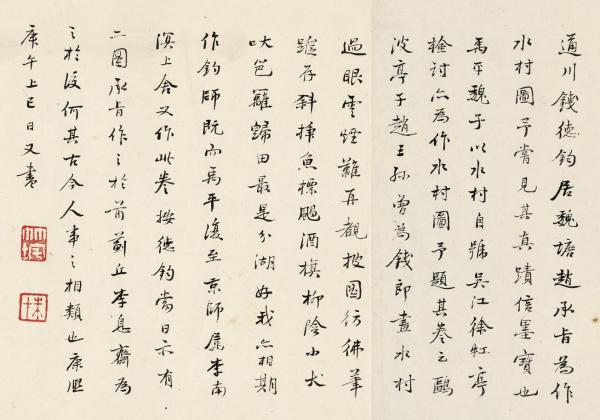 通川錢德鈞居魏塘趙承旨為作
水村圖予嘗見其真蹟信墨寶也
禹平魏子以水村自號吳江徐虹亭
檢討亦為作水村圖予題其卷云鷗
波亭子趙王孫曾為錢郎畫水村
過眼雲煙難再觀披圖彷彿筆
蹤存斜揷魚標颺酒旗柳陰小犬
吠笆籬歸田最是分湖好我亦相期
作釣師既而禹平復至京師屬李南
溟上舍又作此卷按德鈞當日亦有
二圖承旨作之於前薊丘李息齋為
之於後何其古今人事之相類也康熙
庚午上巳日又書
竹垞
朱十